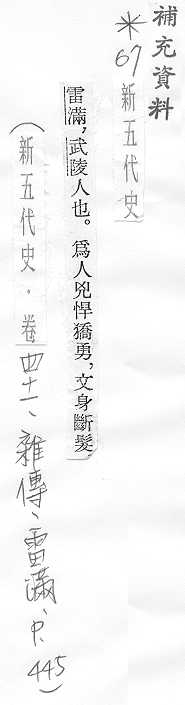 補充資料
*67 新五代史
雷滿，武陵人也。爲人兇悍獢勇，文身斷髮
（新五代史．卷四十一、雜傳、雷滿、P.445）